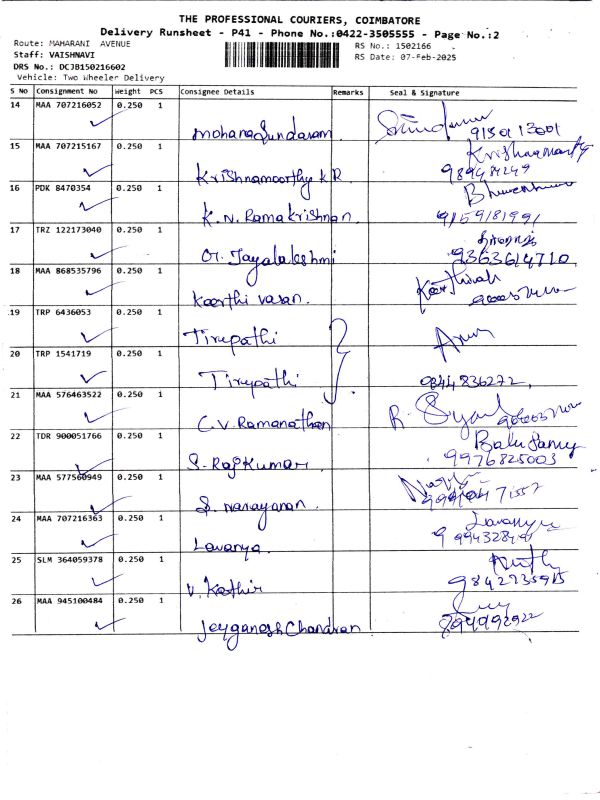 THE PROFESSIONAL COURIERS, COIMBATORE
Delivery Runsheet - P41 - Phone No.:0422-3505555 - Page No.:2
Route: MAHARANI AVENUE
RS No.: 1502166
Staff: VAISHNAVI
RS Date: 07-Feb-2025
DRS No.: DCJB150216602
Vehicle: Two Wheeler Delivery
S No Consignment No Weight PCS Consignee Details Remarks Seal & Signature
14 MAA 707216052 0.250 1
Mohana Sundaram
15 MAA 707215167 0.250 1 Krishnamoorthy
Krishnamoorthy K R
16 PDK 8470354 0.250 1
K.N. Ramakrishnan 9159181991
17 TRZ 122173040 0.250 1
Jayalakshmi 9363614710
18 MAA 868535796 0.250 1
Keerthi vasan.
19 TRP 6436053 0.250 1
Tirupathi Arun
20 TRP 1541719 0.250 1
Tirupathi 9844836272
21 MAA 576463522 0.250 1
C.V. Ramanathan
22 TDR 900051766 0.250 1 Balusamy
S. Rajkumar 9976825003
23 MAA 577560949 0.250 1
S. Narayanan.
24 MAA 707216363 0.250 1 Lavanya
Lavanya.
25 SLM 364059378 0.250 1
V. Kathir
26 MAA 945100484 0.250 1
Jeyganesh Chandran